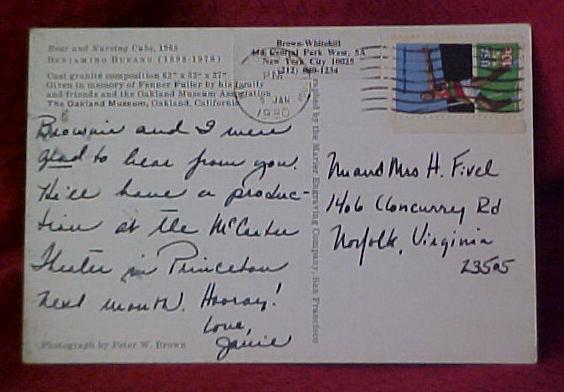 Bear and Nursing Cubs, 1968
BENIAMINO BUFANO (1898-1970)
Cast granite composition 62" x 32" x 27"
Given in memory of Fenner Fuller by his family
and friends and the Oakland Museum Association
The Oakland Museum, Oakland, California
Brown-Whitehill
Central Park West, 5A
New York City 10025
(212)
PM
5 JAN
1980
USA
10c
Brownie and I were
glad to hear from you.
He'll have a produc-
tion at the McCarter
Theater in Princeton
next month. Hooray!
Love,
Janie
Photograph by Peter W. Brown
by the Marier Engraving Company, San Francisco
Mr and Mrs H. Fivel
1406 Cloncurry Rd
Norfolk, Virginia
23505